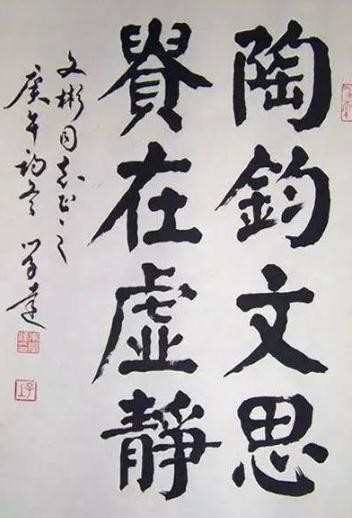 陶鈞文思
貴在虛靜
文彬同志正之
庚午初